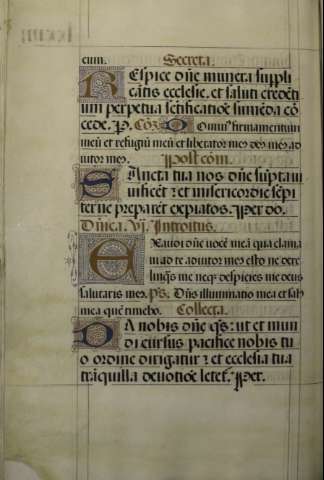 cum. Secreta.
Respice dñe munera suppli
cãtis ecclesie. et saluti credẽti
um perpetua sctificatiõe sumẽda cõ
cede. P. Cõ3 Dominus firmamentum
meũ et refugiũ meũ et liberator meꝰ deꝰ meꝰ ad
iutor meꝰ. Post com.
Sancta tua nos dñe sũpta vi
vificẽt ⁊ et misericordie sẽpi
terne preparẽt expiatos. Per do.
Dñica. vj. Introitus.
Exaudi dñe uocẽ meã qua clama
ui ad te adiutor meꝰ esto ne dere
linq̃s me neq; despicies me deus
salutaris meꝰ. ps. Dñs illuminatio mea et sal
mea quẽ timebo. Collecta.
Da nobis dñe q̃s: ut et mun
di cursus pacifice nobis tu
o ordine dirigatur ⁊ et ecclesia tua
trãquilla deuotiõe letet᷑. Per.